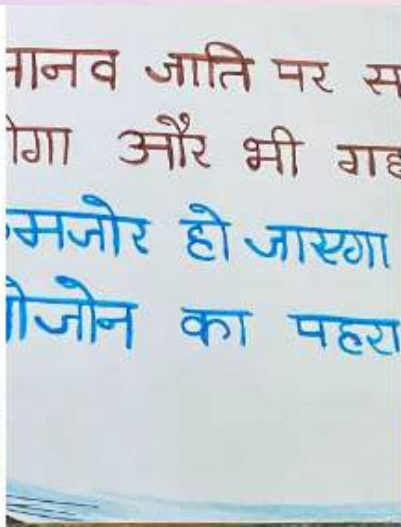 मानव जाति पर स
ोगा और भी गह
मजोर हो जाएगा
ोजोन का पहरा